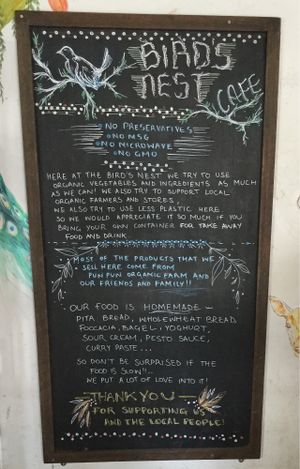 BIRD'S
NEST
CAFE
NO PRESERVATIVES
NO MSG
NO MICROWAVE
NO GMO
HERE AT THE BIRD'S NEST WE TRY TO USE
ORGANIC VEGETABLES AND INGREDIENTS AS MUCH
AS WE CAN! WE ALSO TRY TO SUPPORT LOCAL
ORGANIC FARMERS AND STORES,
WE ALSO TRY TO USE LESS PLASTIC HERE
SO WE WOULD APPRECIATE IT SO MUCH IF YOU
BRING YOUR OWN CONTAINER FOR TAKE AWAY
FOOD AND DRINK
MOST OF THE PRODUCTS THAT WE
SELL HERE COME FROM
PUN PUN ORGANIC FARM AND
OUR FRIENDS AND FAMILY!!
OUR FOOD IS HOMEMADE —
PITA BREAD, WHOLEWHEAT BREAD,
FOCCACIA, BAGEL, YOGHURT,
SOUR CREAM, PESTO SAUCE,
CURRY PASTE...
SO DON'T BE SURPRISED IF THE
FOOD IS SLOW!!..
WE PUT A LOT OF LOVE INTO IT!
— THANK YOU —
FOR SUPPORTING US
AND THE LOCAL PEOPLE!